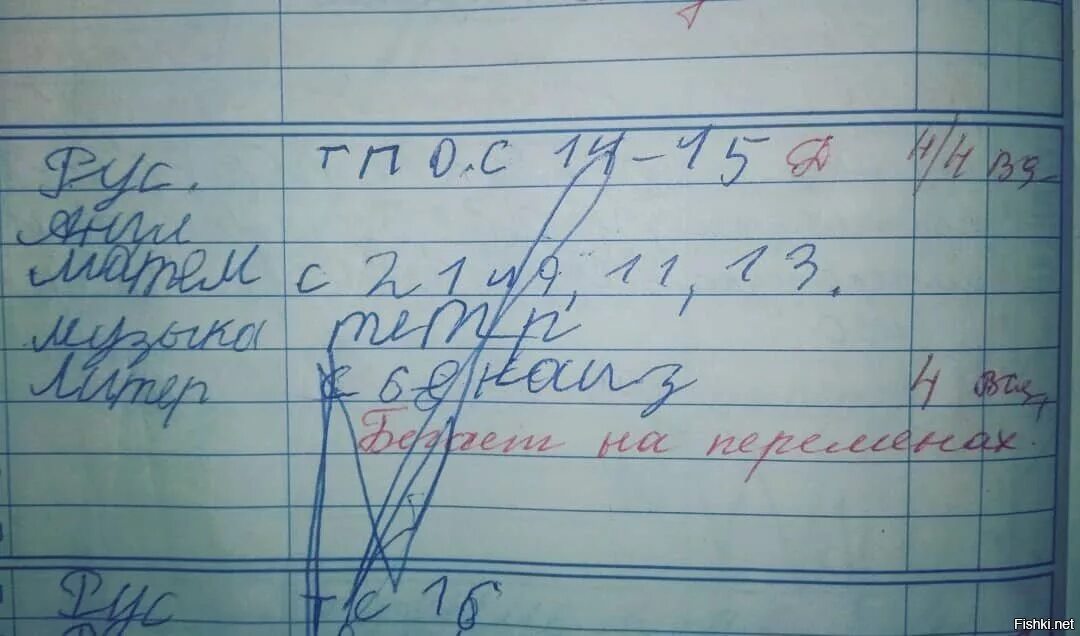 Рус. тпо.с 14-15 Д 4/4 Вя
Англ
Матем с 21 49, 11, 13.
музыка тетр
Литер с 68 наиз 4
Бегает на переменах.
Рус т с 16
Fishki.net